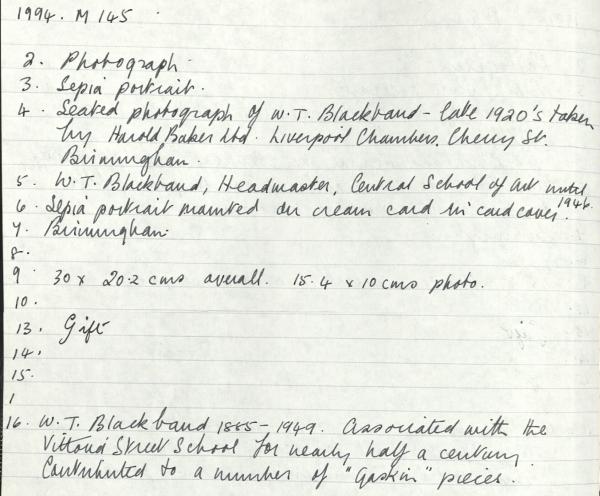 1994. M 145
2. Photograph.
3. Sepia portrait.
4. Seated photograph of W.T. Blackband - late 1920's taken
by Harold Baker Ltd. Liverpool Chambers, Cherry St.
Birmingham.
5. W.T. Blackband, Headmaster, Central School of Art until
1946.
6. Sepia portrait mounted on cream card in card cover.
7. Birmingham.
8.
9 30 x 20.2 cms overall. 15.4 x 10 cms photo.
10.
13. Gift
14.
15.
1
16. W.T. Blackband 1885-1949. Associated with the
Vittoria Street School for nearly half a century.
Contributed to a number of "Gaskin" pieces.